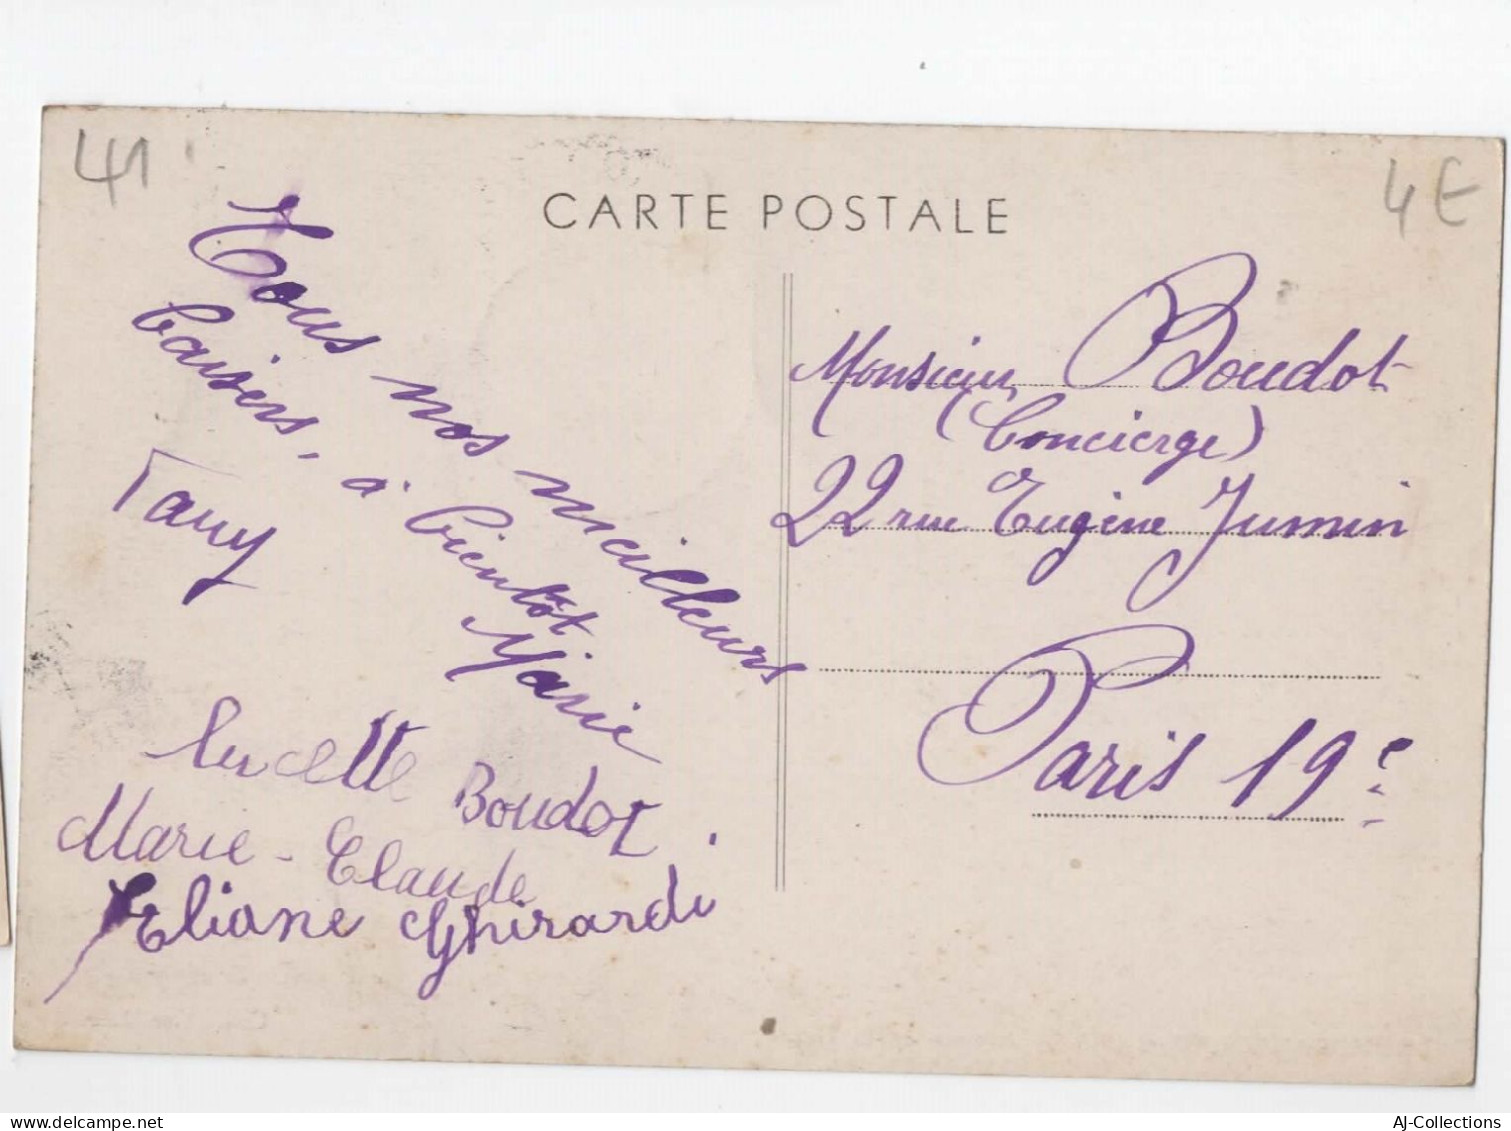 41
CARTE POSTALE
4E
Tous nos meilleurs
baisers, à bientôt
Marie
Tauy
Lucette Boudot
Marie-Claude
Eliane Ghirardi
Monsieur Boudot
(Concierge)
22 rue Eugène Jumin
Paris 19e
AJ-Collections